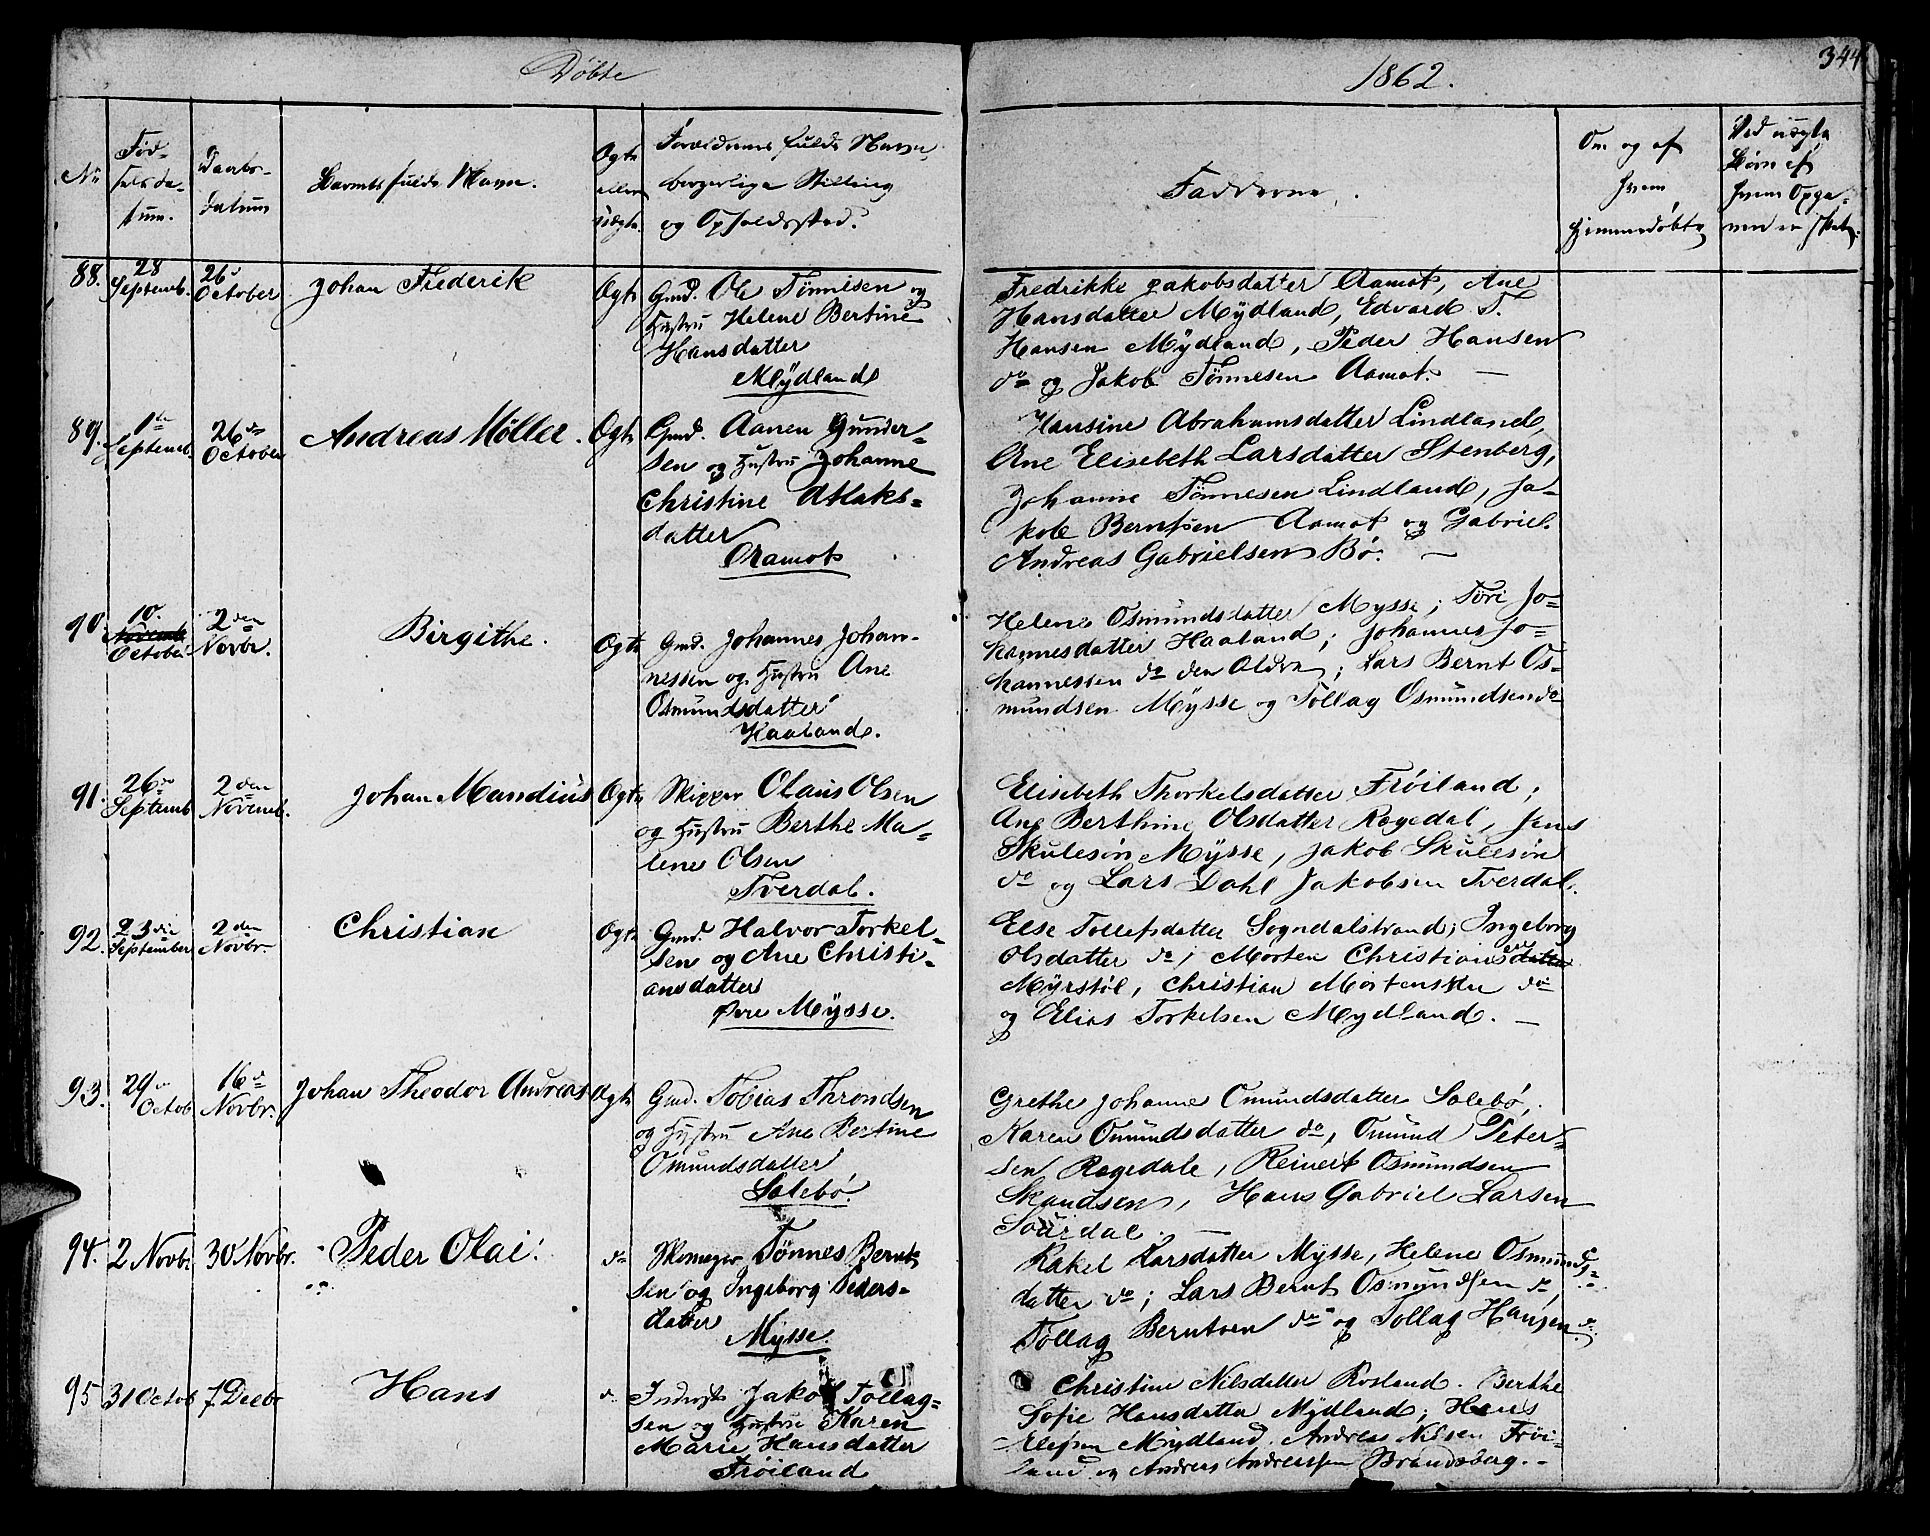 Döbte
1862.
344
No
Födselsdatum.
Daabsdatum
Barnets fulde Navn.
Ægte eller uægte.
Forældrenes fulde Navn, borgerlige Stilling og Opholdssted.
Fadderne.
Om og af hvem hjemmedöbt
Ved uægte Börn af hvem Opgaven er skedt.
88.
28 Septemb.
26 October
Johan Frederik
Ægte
Gmd. Ole Tönnesen og
Hustru Helene Bertine
Hansdatter
Mÿdland
Fredrikke Jakobsdatter Aamot, Ane
Hansdatter Mÿdland, Edvard T.
Hansen Mÿdland, Peder Hansen
do og Jakob Tönnesen Aamot. —
89.
1te Septemb.
26de October
Andreas Möller.
Ægte
Gmd. Aanen Gunder=
sen og Hustru Johanne
Christine Atlaks=
datter
Aamot
Hansine Abrahamsdatter Lindland,
Ane Elisebeth Larsdatter Stenberg,
Johanne Tönnesen Lindland, Ja=
kob Berntsen Aamot og Gabriel
Andreas Gabrielsen Bö. —
90.
10. Novemb October
2den Novbr.
Birgithe.
Ægte
Gmd. Johannes Johan=
nessen og Hustru Ane
Osmundsdatter
Haaland.
Helene Osmundsdatter Mysse; Tori Jo=
hannesdatter Haaland; Johannes Jo=
hannessen do den Aldre; Lars Bernt Os=
mundsen Mÿsse og Tollag Osmundsen do
91.
26de Septemb
2den Novemb.
Johan Mandius
Ægte
Skipper Olaus Olsen
og Hustru Berthe Ma=
lene Olsen
Tverdal.
Elisebeth Thorkelsdatter Fröiland;
Ane Berthine Olsdatter Rægedal, Jens
Skulesön Mÿsse, Jakob Skulesön
do og Lars Dahl Jakobsen Tverdal.
92.
23die September
2den Novbr.
Christian
Ægte
Gmd. Halvor Torkel=
sen og Ane Christi=
ansdatter
Öere Mÿsse.
Else Tollefsdatter Sogndalstrand; Ingeborg
Olsdatter do; Morten Christiansdatter sen
Mÿrstöl, Christian Mortensen do
og Elias Torkelsen Mydland. —
93.
29 Octob
16d Novbr.
Johan Theodor Andreas
Ægte
Gmd. Tobias Throndsen
og Hustru Ane Bertine
Omundsdatter
Solebö.
Grethe Johanne Omundsdatter Solebö,
Karen Omundsdatter do, Omund Peter=
sen Rægedale, Reinert Osmundsen
Skandsen, Hans Gabriel Larsen
Sourdal. —
94.
2 Novbr
30 Novbr.
Peder Olai.
do
Skomager Tönnes Bernt
sen og Ingeborg Peders=
datter
Mÿsse.
Rakel Larsdatter Mÿsse, Helene Osmunds=
datter do; Lars Bernt Osmundsen do,
Tollag Berntsen do og Tollag Hansen do
95
31 Octob
7 Decbr
Hans
do
Inderst Jakob Tollag=
sen og Hustru Karen
Marie Hansdatter
Fröiland
Christine Nilsdatter Rosland. Berthe
Sofie Hansdatter Mÿdland; Hans
Elefsen Mÿdland. Andreas Nilsen Fröi=
land og Anders Anderssen Brandsberg. —